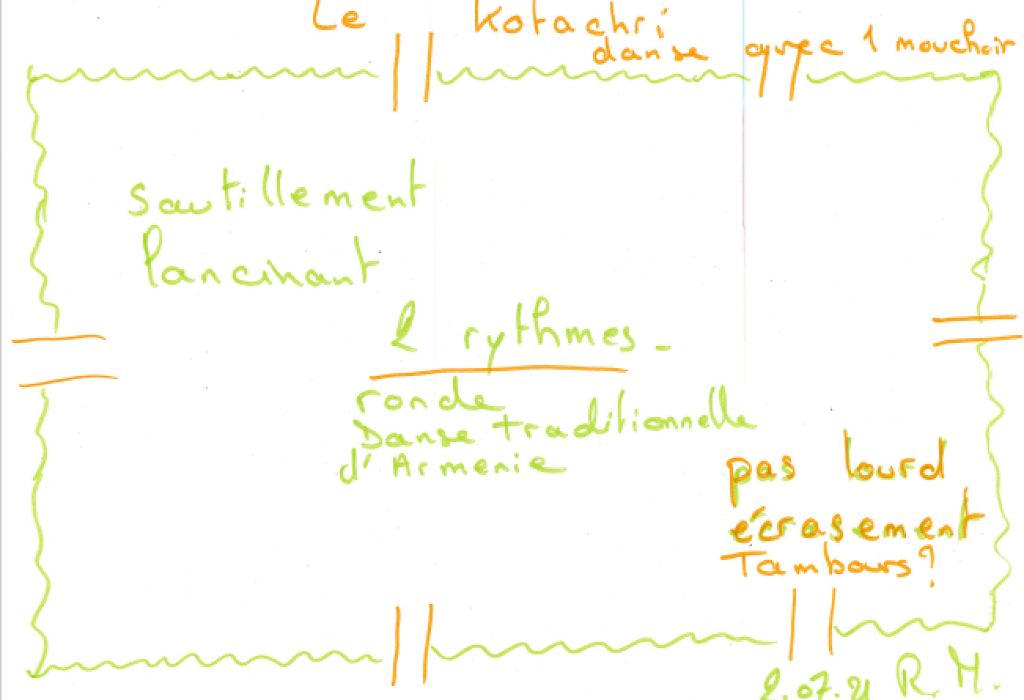 Le Kotachri
danse avec 1 mouchoir
sautillement
lancinant
2 rythmes -
ronde
Danse traditionnelle
d'Armenie
pas lourd
écrasement
Tambours?
2.07.21 R.M.